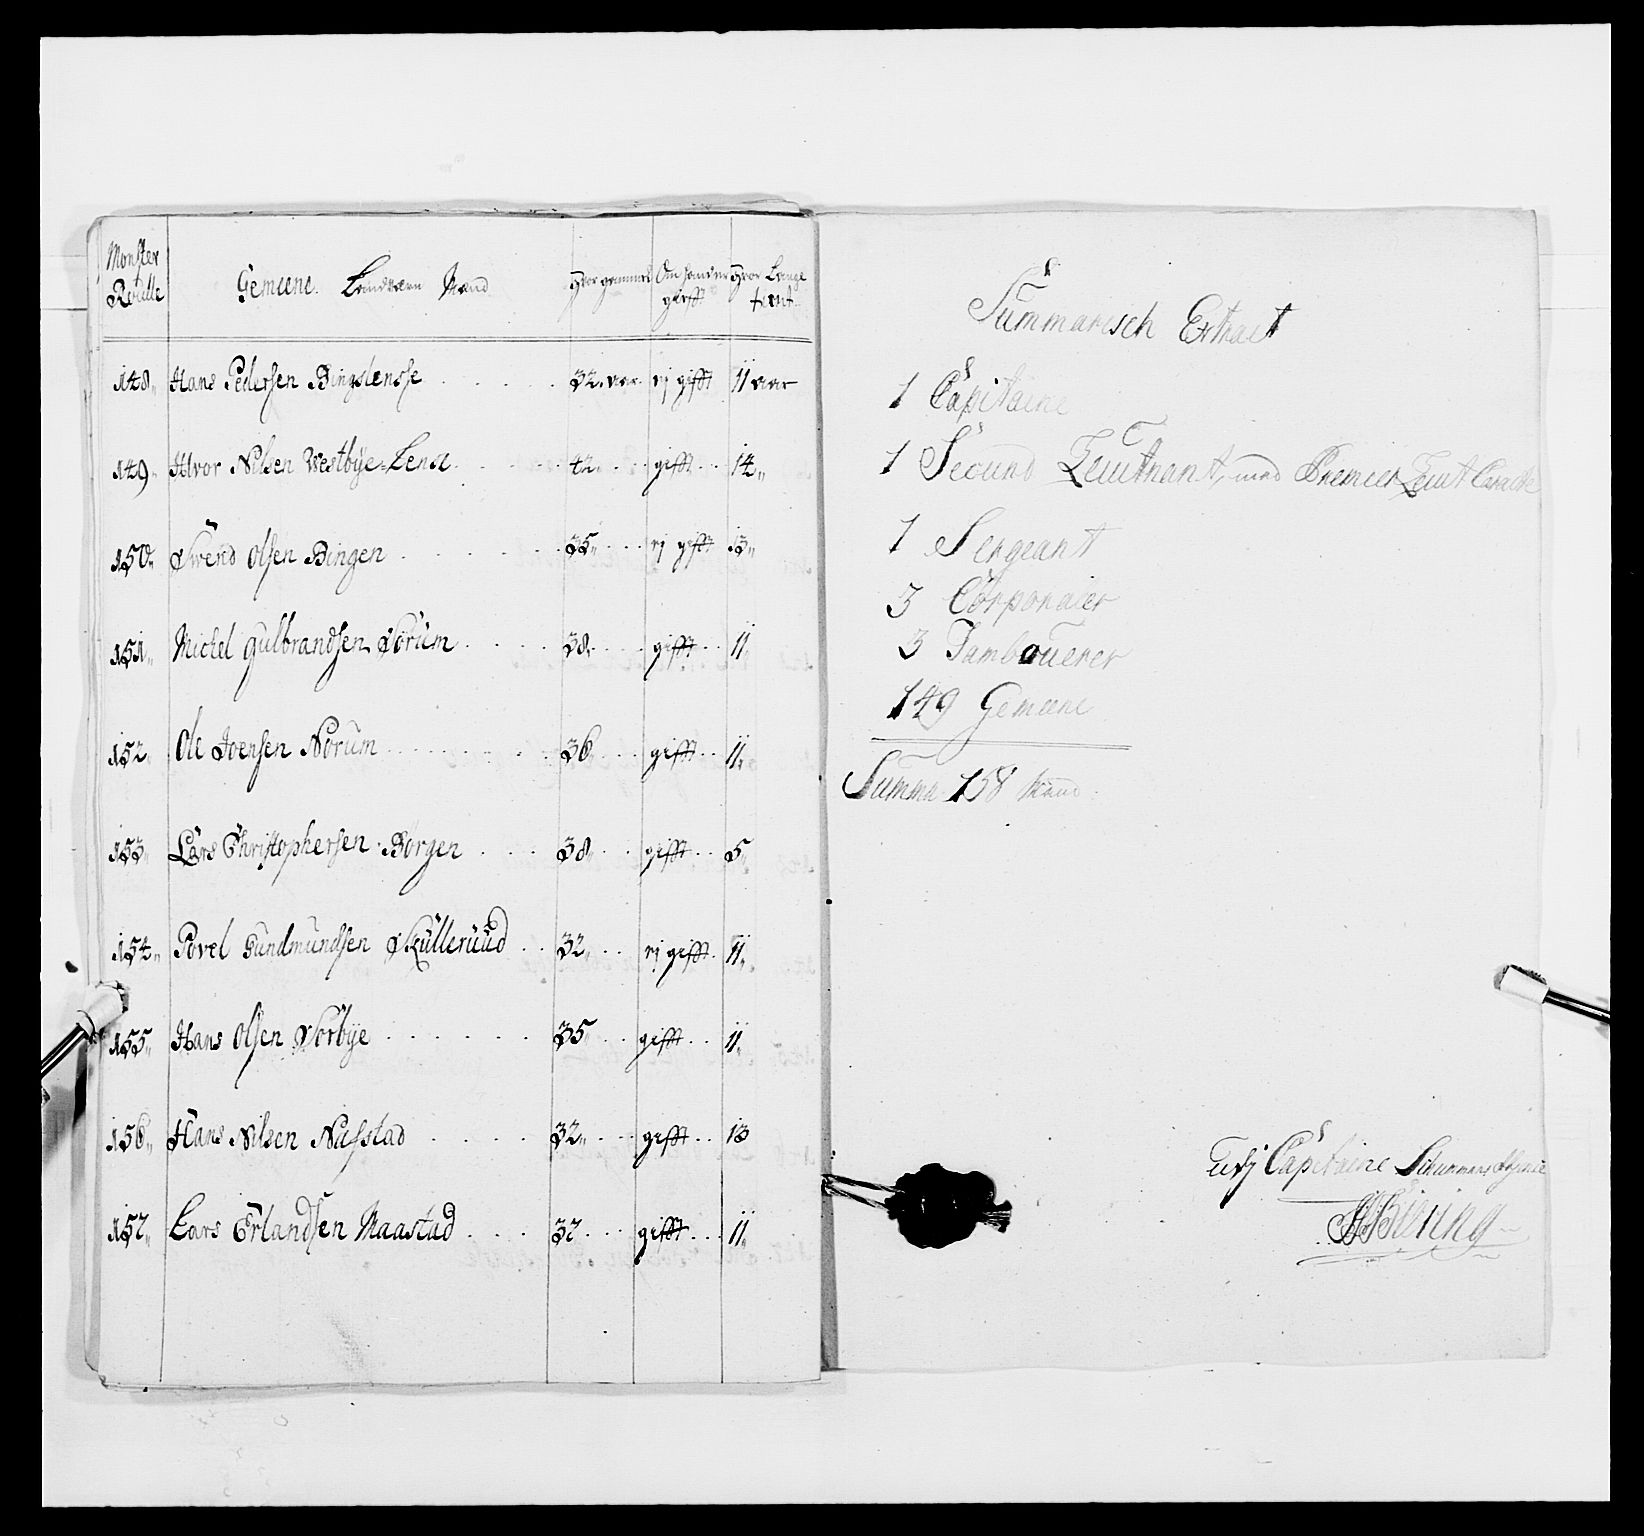 Monster Roulle Gemeene Landværn Mand Hvor gammel Om hand er gifft Hvor Længe tient
148 Hans Pedersen Bingslensse 32 aar ej gifft 11 aar
149 Halvor Nilsen Westbye=Lena 42 gifft 14
150 Svend Olsen Bingen 35 ej gifft 13
151 Michel Gulbrandsen Sørum 38 gifft 11
152 Ole Joensen Norum 36 gifft 11
153 Lars Christophersen Børgen 38 gifft 5
154 Povel Gundmundsen Skulleruud 32 ej gifft 11
155 Hans Olsen Sørbye 35 gifft 11
156 Hans Nilsen Nafstad 32 gifft 13
157 Lars Erlandsen Maastad 32 gifft 11
Summarisch Extract
1 Capitaine
1 Secund Leutnant, med Premier Leut Caracte
1 Sergeant
3 Corporaler
3 Tambouerer
149 Gemeene
Summa 158 Mand
udj Capitaine